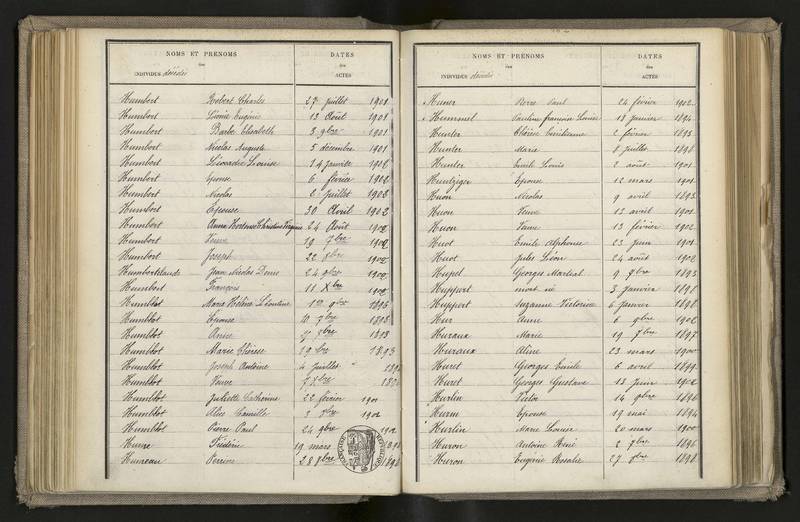 NOMS ET PRÉNOMS DATES
des des
INDIVIDUS décédés ACTES
Humbert Robert Charles 27 juillet 1901
Humbert Léonie Eugénie 13 Août 1901
Humbert Barbe Elisabeth 3 9bre 1901
Humbert Nicolas Auguste 5 décembre 1901
Humbert Léocadie Louise 14 janvier 1902
Humbert épouse 6 février 1902
Humbert Nicolas 2 Juillet 1902
Humbert Epouse 30 Avril 1902
Humbert Anne Hortense Christine Virginie 24 Août 1902
Humbert Veuve 19 7bre 1902
Humbert Joseph 22 1902
Humbertclaude Jean Nicolas Denis 24 9bre 1902
Humbert François 11 Xbre 1902
Humblot Marie Hélène Léontine 1er 9bre 1893
Humblot Epouse 10 7bre 1898
Humblot 1898
Humblot Marie Thérèse 1893
Humblot Joseph Antoine 4 juillet
Humblot Veuve 7 Xbre
Humblot Juliette Catherine 22 février 1901
Humblot Alice Camille 3 1902
Humblot Pierre Paul 24 9bre 1902
Frédéric 19 mars
Huneau Perrine 28
NOMS ET PRÉNOMS DATES
des des
INDIVIDUS décédés ACTES
Pierre Paul 24 février 1902
Hummel Pauline françoise Louise 18 janvier 1894
Hunter Thérèse Emilienne 2 février 1893
Hunter Marie 8 juillet 1898
Hunter Emile Louis 2 août 1901
Huntziger Epouse 12 mars 1901
Huon Nicolas 9 avril 1893
Huon Veuve 13 avril 1901
Huon Veuve 13 février 1902
Huot Emile Alphonse 23 juin 1901
Huot Jules Léon 24 août 1902
Hupel Georges Martial 9 9bre 1893
Huppert mort né 3 janvier 1898
Huppert Suzanne Victorine 6 janvier 1898
Hur Anne 6 9bre 1902
Huraux Marie 19 7bre 1897
Huraux Aline 23 mars 1900
Huret Georges Emile 6 avril 1899
Huret Georges Gustave 13 juin 1902
Hurlin Victor 14 9bre 1896
Epouse 19 mai 1894
Hurlin Marie Louise 20 mars 1900
Huron Antoine René 2 7bre 1896
Huron Eugénie Rosalie 27 1898